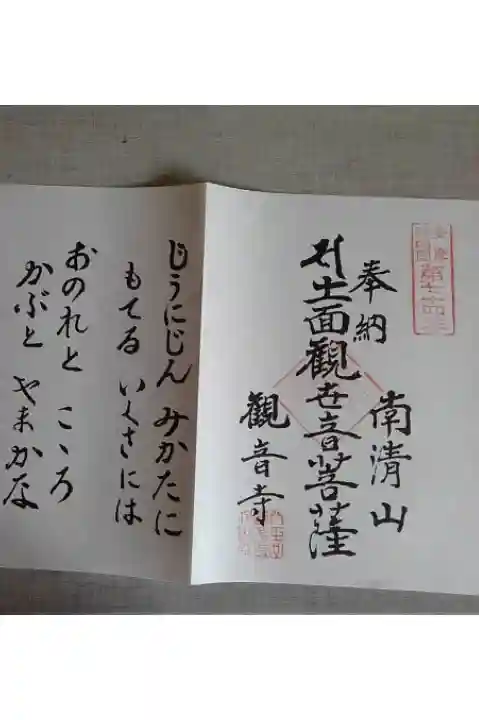 奉納
南清山
十一面観世音菩薩
観音寺
じうにじん みかたに
もてる いくさには
おのれと こゝろ
かぶと やまかな